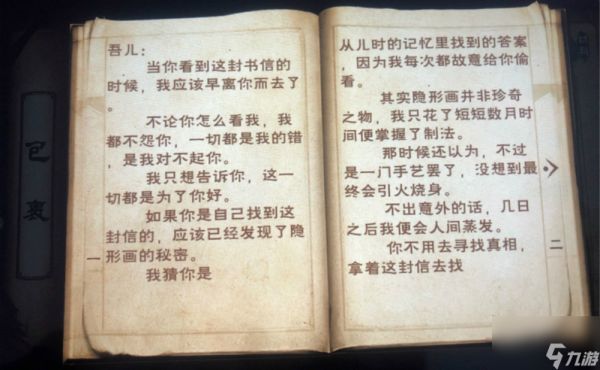 吾儿：
当你看到这封书信的
时候，我应该早离你而去了
。
不论你怎么看我，我
都不怨你，一切都是我的错
，是我对不起你。
我只想告诉你，这一
切都是为了你好。
如果你是自己找到这
封信的，应该已经发现了隐
形画的秘密。
我猜你是
一
从儿时的记忆里找到的答案
，因为我每次都故意给你偷
看。
其实隐形画并非珍奇
之物，我只花了短短数月时
间便掌握了制法。
那时候还以为，不过
是一门手艺罢了，没想到最
终会引火烧身。
不出意外的话，几日
之后我便会人间蒸发。
你不用去寻找真相，
拿着这封信去找
二
包裹
九游